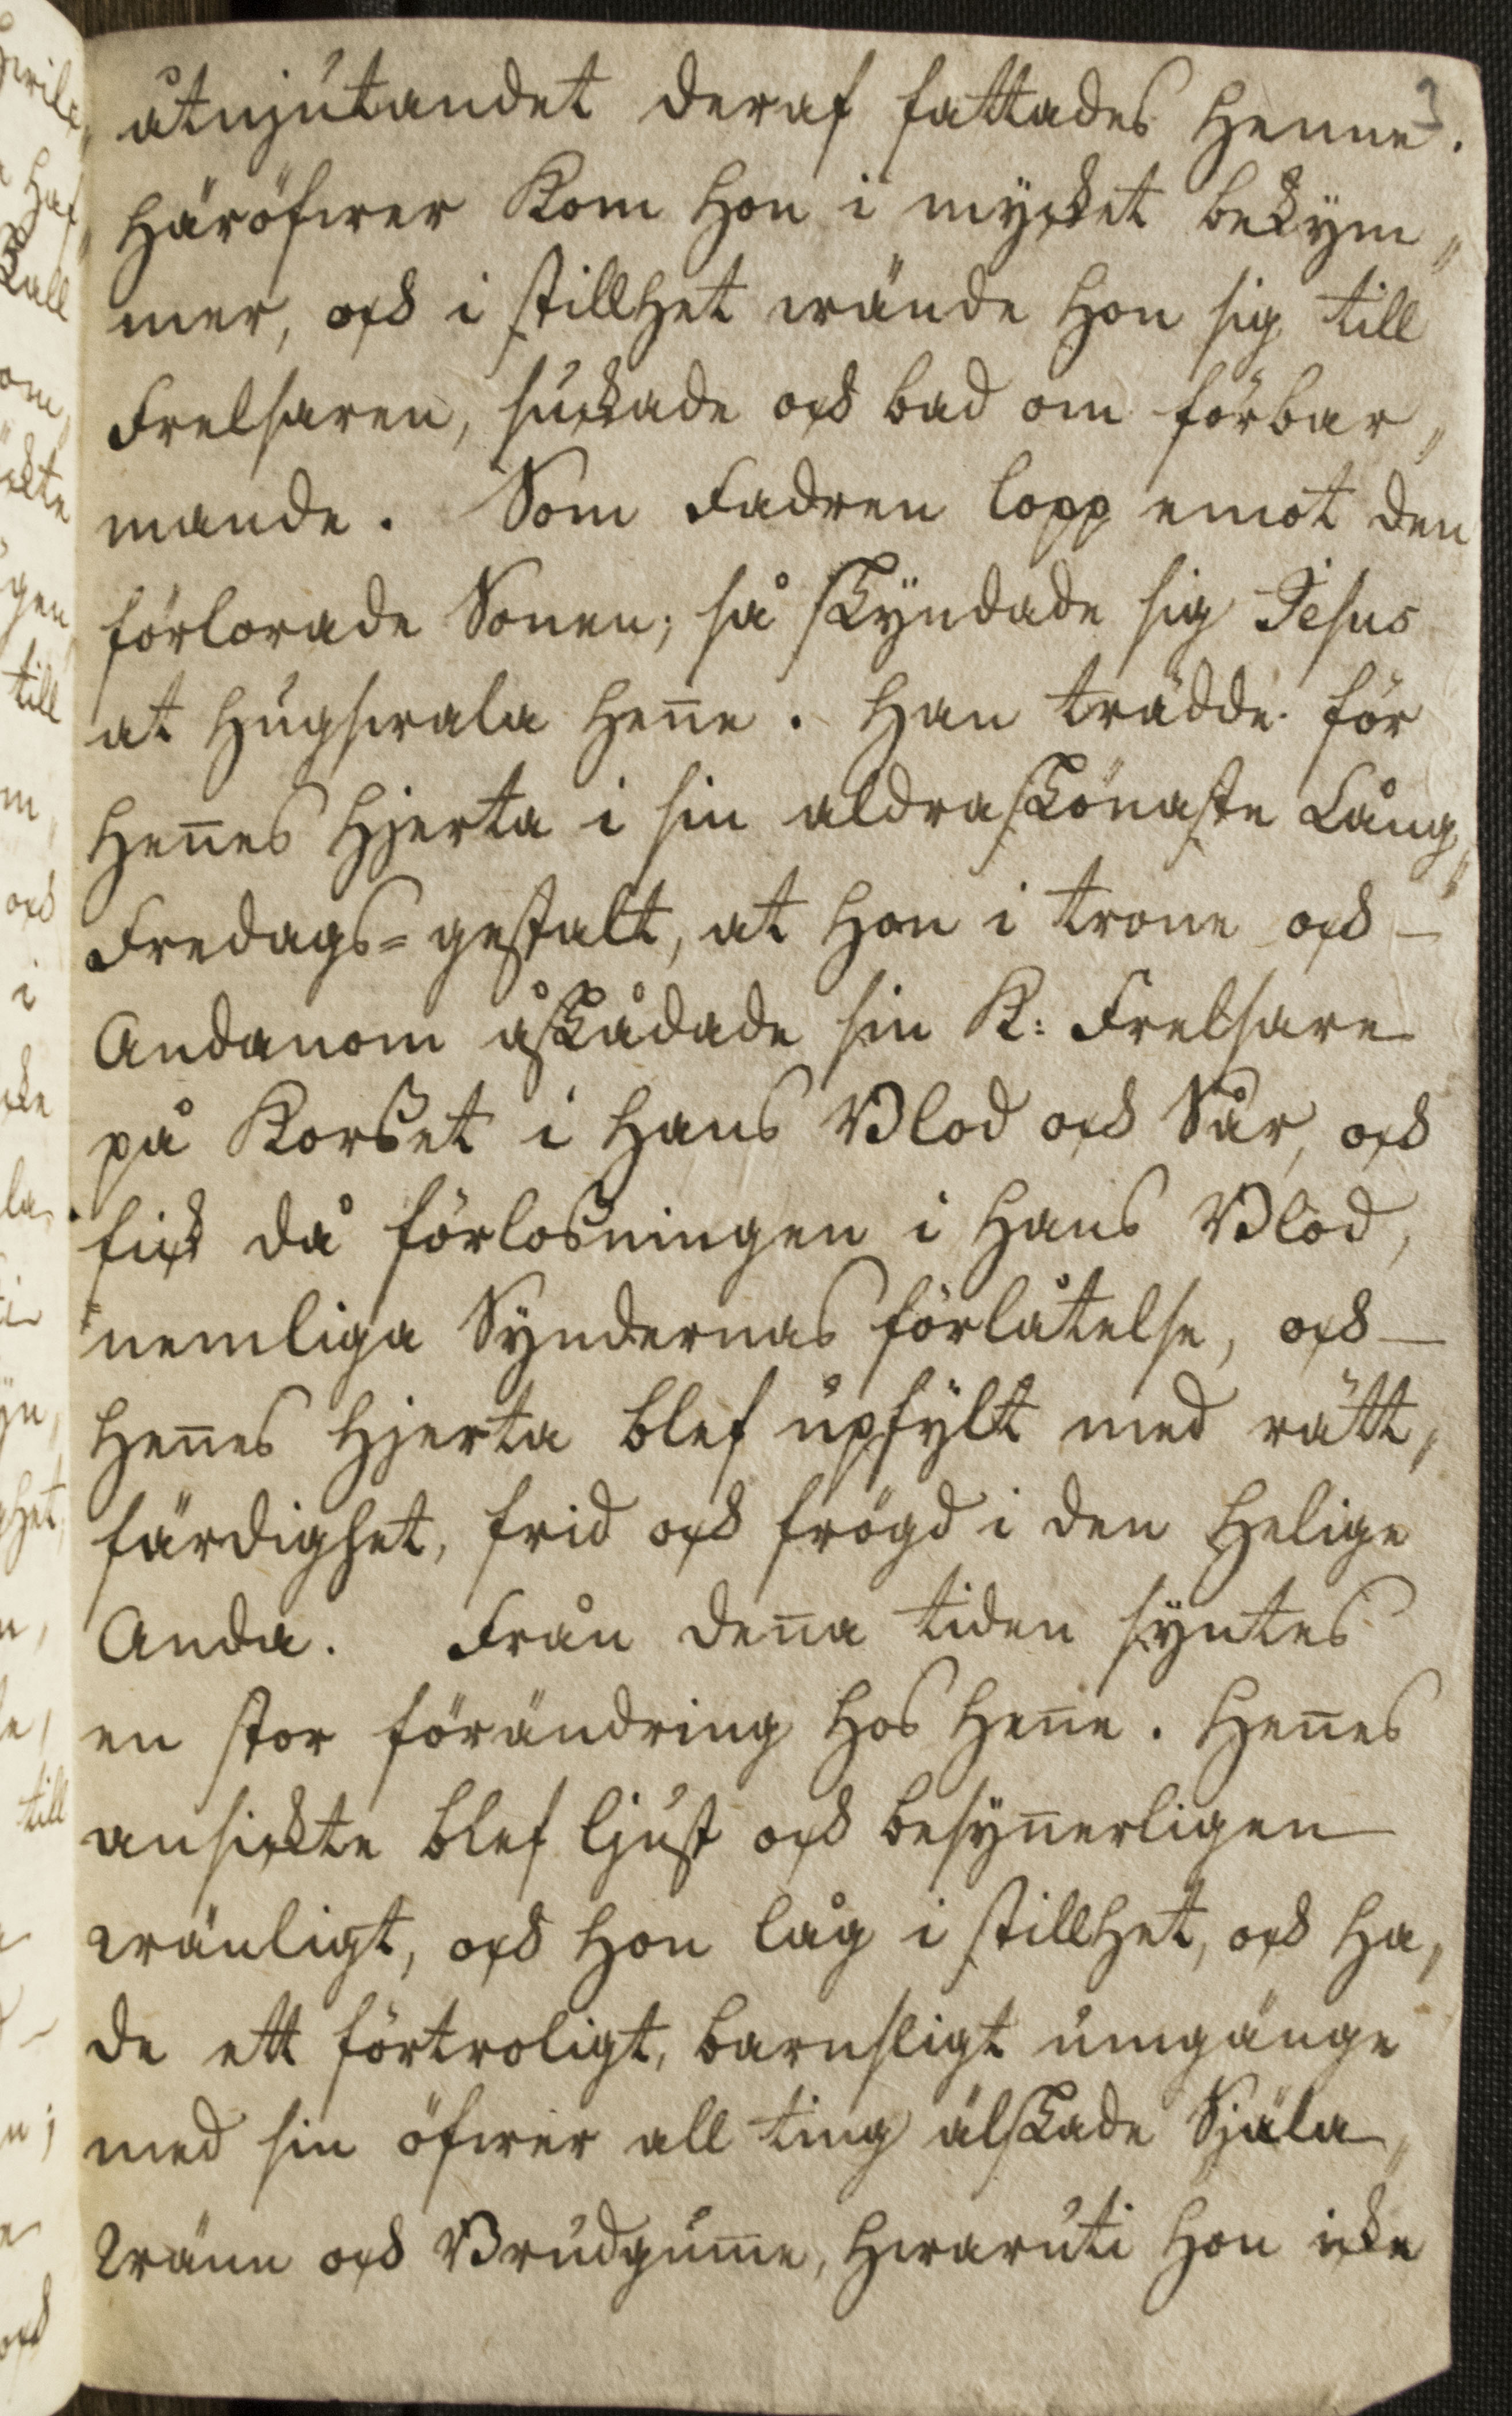 3
åtnjutandet deraf fattades Henne.
Häröfwer kom hon i mycket bekym„
mer, och i stillhet wände hon sig till
Frelsaren, suckade och bad om förbar„
mande. Som Fadren lopp emot den
förlorade Sonen; så skyndade sig Jesus
at hugswala hen̄e. Han trädde för
Hen̄es Hjerta i sin aldraskönaste Lång„
Fredags=gestalt, at hon i trone och —
Andanom åskådade sin K: Frelsare
på Korßet i Hans Blod och Sår, och
fick då förloßningen i Hans Blod,
nemliga Syndernas förlåtelse, och —
Hen̄es Hjerta blef upfylt med rätt„
färdighet, frid och frögd i den Helige
Anda. Från den̄a tiden syntes
en stor förändring hos Hen̄e. Hen̄es
ansickte blef ljust och besyn̄erligen
wänligt, och hon låg i stillhet, och ha„
de ett förtroligt, barnsligt umgänge
med sin öfwer all ting älskade Själa„
Wänn och Brudgum̄e, hwaruti hon icke